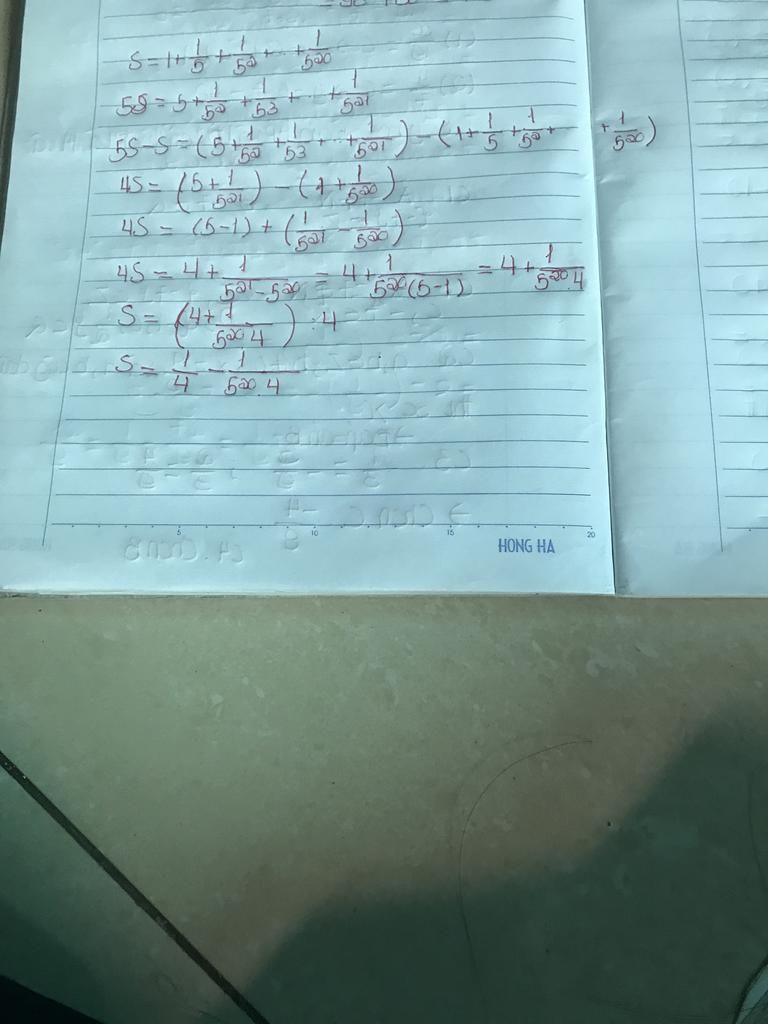 S = 1 + 1/5 + 1/5² + ... + 1/5²⁰
5S = 5 + 1/5² + 1/5³ + ... + 1/5²¹
5S - S = (5 + 1/5² + 1/5³ + ... + 1/5²¹) - (1 + 1/5 + 1/5² + ... + 1/5²⁰)
4S = (5 + 1/5²¹) - (1 + 1/5²⁰)
4S = (5-1) + (1/5²¹ - 1/5²⁰)
4S = 4 + 1/(5²¹ - 5²⁰) = 4 + 1/(5²⁰(5-1)) = 4 + 1/(5²⁰.4)
S = (4 + 1/(5²⁰.4)) : 4
S = 1/4 - 1/(5²⁰.4)
5 10 15 20
HONG HA